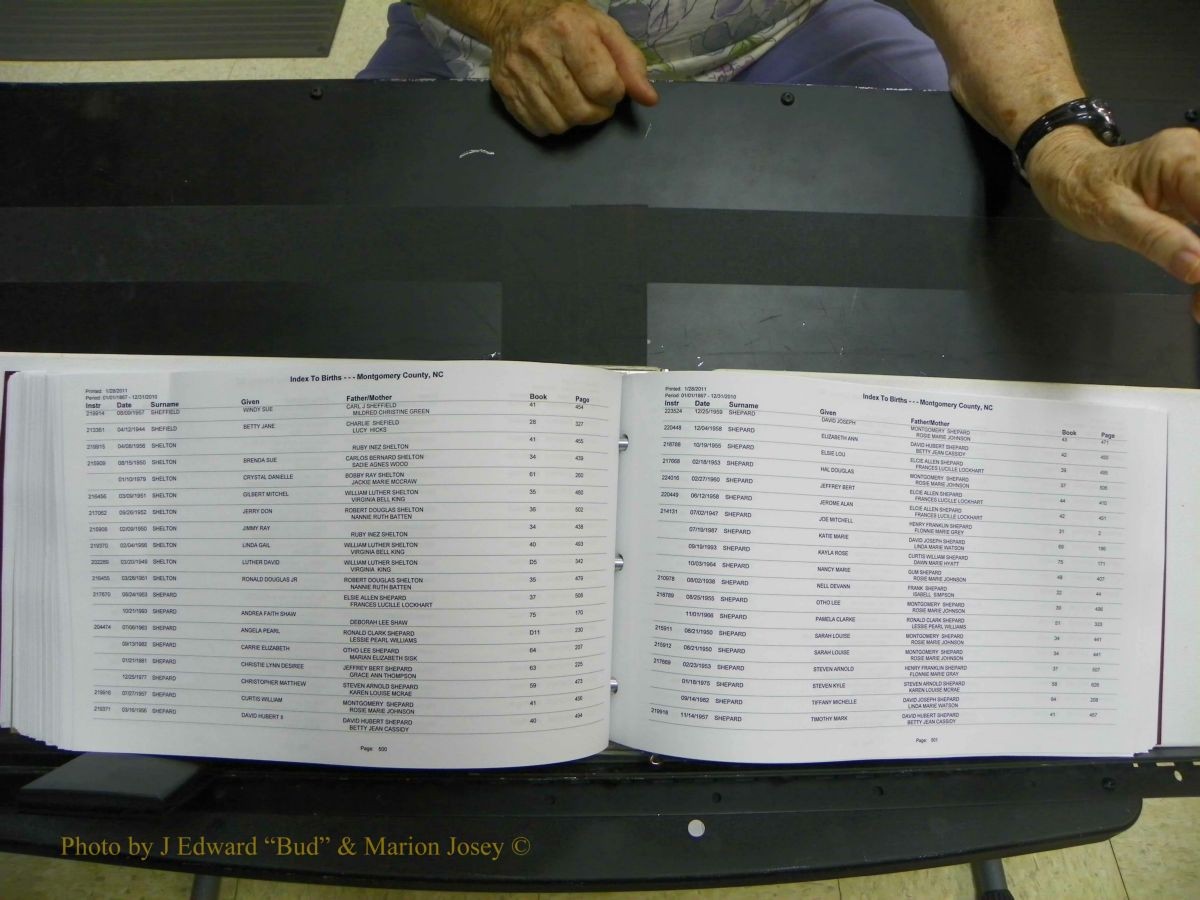 Index To Births - - - Montgomery County, NC
Printed: 1/28/2011
Period: 01/01/1867 - 12/31/2010
Instr Date Surname Given Father/Mother Book Page
219914 08/09/1957 SHEFFIELD WINDY SUE CARL J SHEFFIELD 41 454
MILDRED CHRISTINE GREEN
213361 04/12/1944 SHEFIELD BETTY JANE CHARLIE SHEFIELD 28 327
LUCY HICKS
219915 04/08/1956 SHELTON 41 455
RUBY INEZ SHELTON
215909 08/15/1950 SHELTON BRENDA SUE CARLOS BERNARD SHELTON 34 439
SADIE AGNES WOOD
01/10/1979 SHELTON CRYSTAL DANIELLE BOBBY RAY SHELTON 61 260
JACKIE MARIE MCCRAW
216456 03/09/1951 SHELTON GILBERT MITCHEL WILLIAM LUTHER SHELTON 35 480
VIRGINIA BELL KING
217062 09/26/1952 SHELTON JERRY DON ROBERT DOUGLAS SHELTON 36 502
NANNIE RUTH BATTEN
215908 02/09/1950 SHELTON JIMMY RAY 34 438
RUBY INEZ SHELTON
219370 02/04/1956 SHELTON LINDA GAIL WILLIAM LUTHER SHELTON 40 493
VIRGINIA BELL KING
202289 03/20/1949 SHELTON LUTHER DAVID WILLIAM LUTHER SHELTON D5 342
VIRGINIA KING
216455 03/28/1951 SHELTON RONALD DOUGLAS JR ROBERT DOUGLAS SHELTON 35 479
NANNIE RUTH BATTEN
217670 08/24/1953 SHEPARD ELSIE ALLEN SHEPARD 37 508
FRANCES LUCILLE LOCKHART
10/21/1993 SHEPARD ANDREA FAITH SHAW 75 170
DEBORAH LEE SHAW
204474 07/06/1963 SHEPARD ANGELA PEARL RONALD CLARK SHEPARD D11 230
LESSIE PEARL WILLIAMS
09/13/1982 SHEPARD CARRIE ELIZABETH OTHO LEE SHEPARD 64 207
MARIAN ELIZABETH SISK
01/21/1981 SHEPARD CHRISTIE LYNN DESIREE JEFFREY BERT SHEPARD 63 225
GRACE ANN THOMPSON
12/25/1977 SHEPARD CHRISTOPHER MATTHEW STEVEN ARNOLD SHEPARD 59 473
KAREN LOUISE MCRAE
219916 07/27/1957 SHEPARD CURTIS WILLIAM MONTGOMERY SHEPARD 41 456
ROSIE MARIE JOHNSON
219371 03/16/1956 SHEPARD DAVID HUBERT II DAVID HUBERT SHEPARD 40 494
BETTY JEAN CASSIDY
Page: 500
Index To Births - - - Montgomery County, NC
Printed: 1/28/2011
Period: 01/01/1867 - 12/31/2010
Instr Date Surname Given Father/Mother Book Page
223524 12/25/1959 SHEPARD DAVID JOSEPH MONTGOMERY SHEPARD 43 471
ROSIE MARIE JOHNSON
220448 12/04/1958 SHEPARD ELIZABETH ANN DAVID HUBERT SHEPARD 42
BETTY JEAN CASSIDY
218788 10/19/1955 SHEPARD ELSIE LOU ELCIE ALLEN SHEPARD 39
FRANCES LUCILLE LOCKHART
217668 02/18/1953 SHEPARD HAL DOUGLAS MONTGOMERY SHEPARD 37
ROSIE MARIE JOHNSON
224016 02/27/1960 SHEPARD JEFFREY BERT ELCIE ALLEN SHEPARD 44
FRANCES LUCILLE LOCKHART
220449 06/12/1958 SHEPARD JEROME ALAN ELCIE ALLEN SHEPARD 42 451
FRANCES LUCILLE LOCKHART
214131 07/02/1947 SHEPARD JOE MITCHELL HENRY FRANKLIN SHEPARD 31 2
FLONNIE MARIE GREY
07/19/1987 SHEPARD KATIE MARIE DAVID JOSEPH SHEPARD 69
LINDA MARIE WATSON
09/19/1993 SHEPARD KAYLA ROSE CURTIS WILLIAM SHEPARD 75 171
DAWN MARIE HYATT
10/03/1964 SHEPARD NANCY MARIE GUM SHEPARD 48 407
ROSIE MARIE JOHNSON
210978 08/02/1938 SHEPARD NELL DEVANN FRANK SHEPARD 22 44
ISABELL SIMPSON
218789 08/25/1955 SHEPARD OTHO LEE MONTGOMERY SHEPARD 39
ROSIE MARIE JOHNSON
11/01/1966 SHEPARD PAMELA CLARKE RONALD CLARK SHEPARD 51 323
LESSIE PEARL WILLIAMS
215911 06/21/1950 SHEPARD SARAH LOUISE MONTGOMERY SHEPARD 34 441
ROSIE MARIE JOHNSON
215912 06/21/1950 SHEPARD SARAH LOUISE MONTGOMERY SHEPARD 34 441
ROSIE MARIE JOHNSON
217669 02/23/1953 SHEPARD STEVEN ARNOLD HENRY FRANKLIN SHEPARD 37 507
FLONNIE MARIE GRAY
01/18/1975 SHEPARD STEVEN KYLE STEVEN ARNOLD SHEPARD 58
KAREN LOUISE MCRAE
09/14/1982 SHEPARD TIFFANY MICHELLE DAVID JOSEPH SHEPARD 64 208
LINDA MARIE WATSON
219918 11/14/1957 SHEPARD TIMOTHY MARK DAVID HUBERT SHEPARD 41 457
BETTY JEAN CASSIDY
Page: 501
Photo by J Edward “Bud” & Marion Josey ©